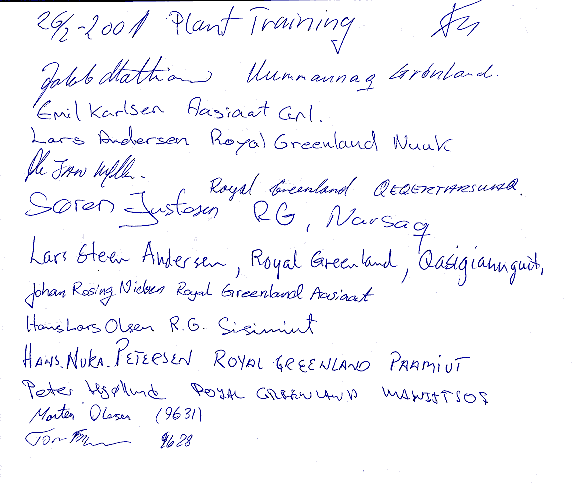 26/2-2001 Plant Training
Jakob Mathian Uummannaq Grönland.
Emil Karlsen Aasiaat Grl.
Lars Andersen Royal Greenland Nuuk
Ole Jan
Royal Greenland QEQERTARSUAQ.
Søren Justesen RG, Narsaq
Lars Steen Andersen, Royal Greenland, Qasigiannguit,
Johan Rosing Nielsen Royal Greenland Aasiaat
Hans Lars Olsen R.G. Sisimiut
HANS. NUKA. PETERSEN ROYAL GREENLAND PAAMIUT
Peter ROYAL GREENLAND MANIITSOQ
Morten Olesen (9631)
Tom 9628